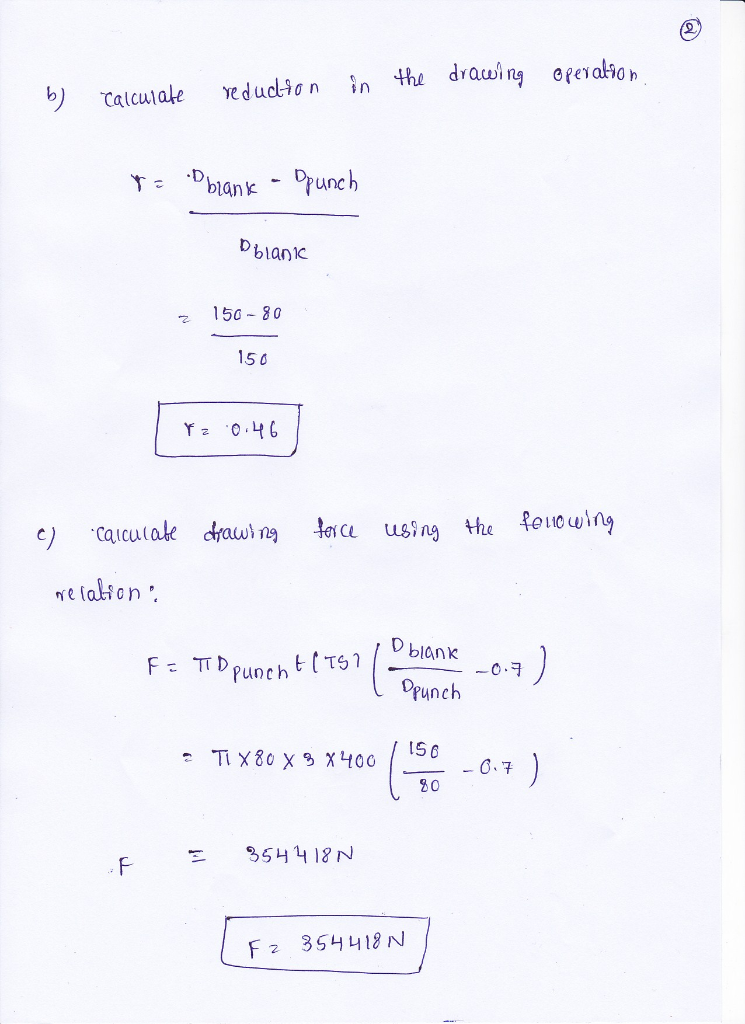 2
b) Calculate reduction in the drawing operation.
r = Dblank - Dpunch
Dblank
= 150 - 80
150
r = 0.46
c) Calculate drawing force using the following
relation:
F = π Dpunch t (TS) ( Dblank / Dpunch - 0.7 )
= π x 80 x 3 x 400 ( 150 / 80 - 0.7 )
F = 354418N
F = 354418N